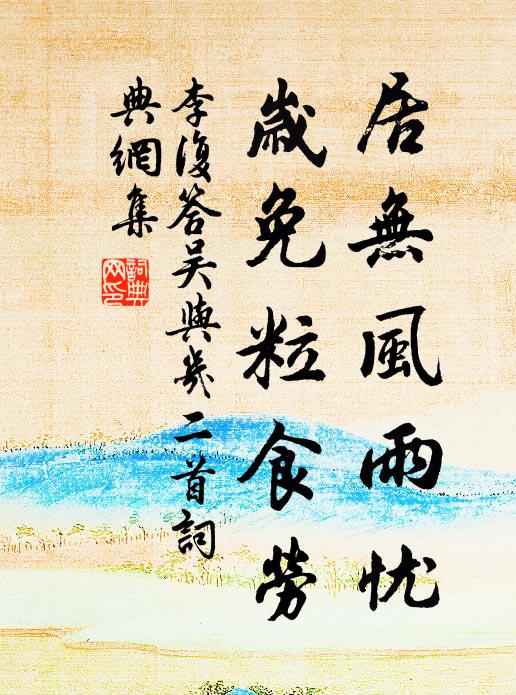 居無風雨忧
歲免粒食勞
李復答吴與幾二首詞
典網集
詞典
网印